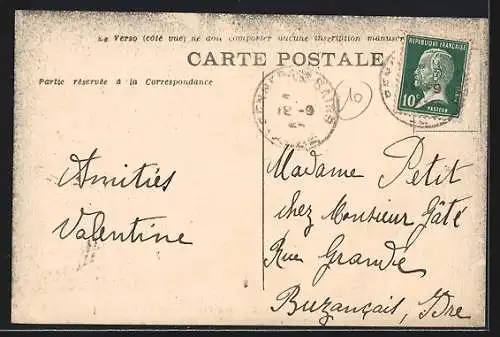 Le Verso (côté vue) ne doit comporter aucune inscription manuscrite
CARTE POSTALE
Partie réservée à la Correspondance
RÉPUBLIQUE FRANÇAISE
10c
PASTEUR
12 - 9
10
Amitiés
Valentine
Madame Petit
chez Monsieur Gâté
Rue Grande
Buzançais, Indre